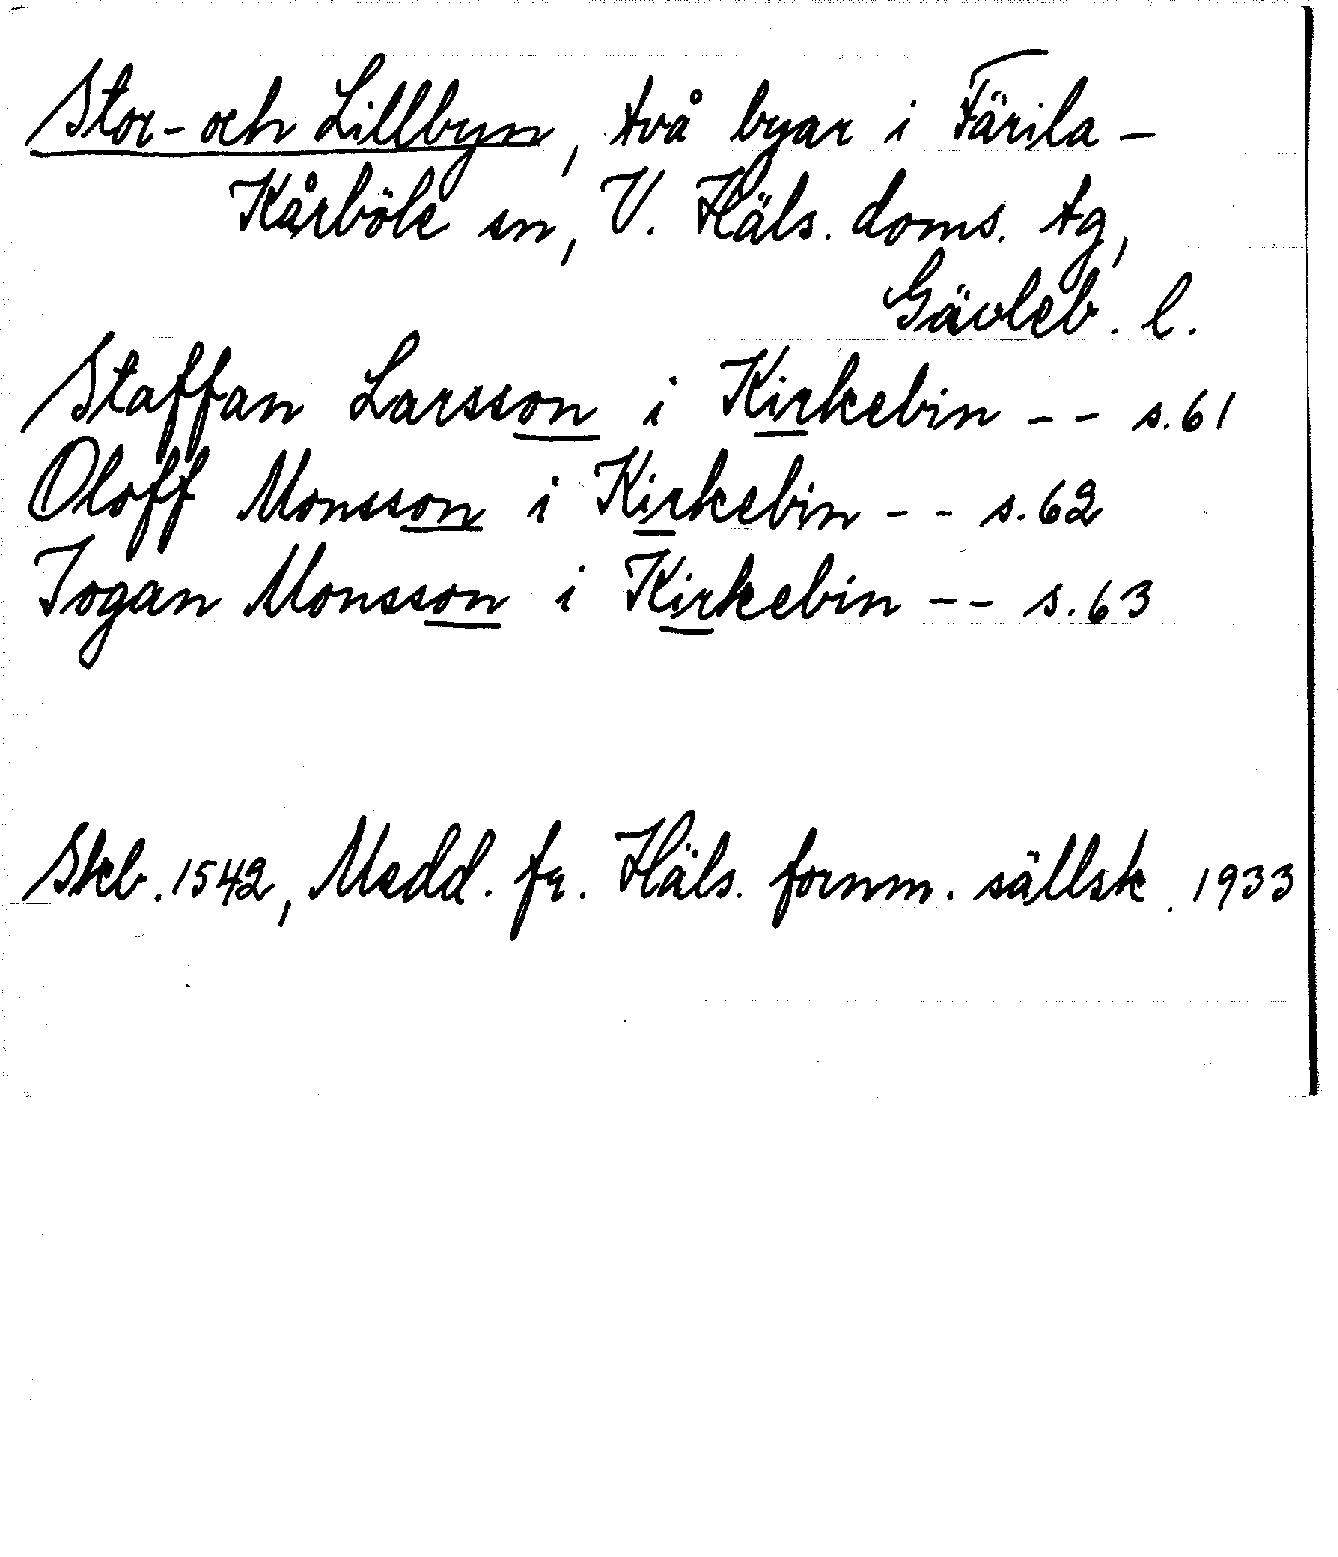 Stor- och Lillbyn, två byar i Färila -
Kårböle sn, V. Häls. doms. tg,
Gävleb. l.
Staffan Larsson i Kirkebin -- s. 61
Oloff Monsson i Kirkebin -- s. 62
Jogan Monsson i Kirkebin -- s. 63
Skb. 1542, Medd. fr. Häls. fornm. sällsk. 1933